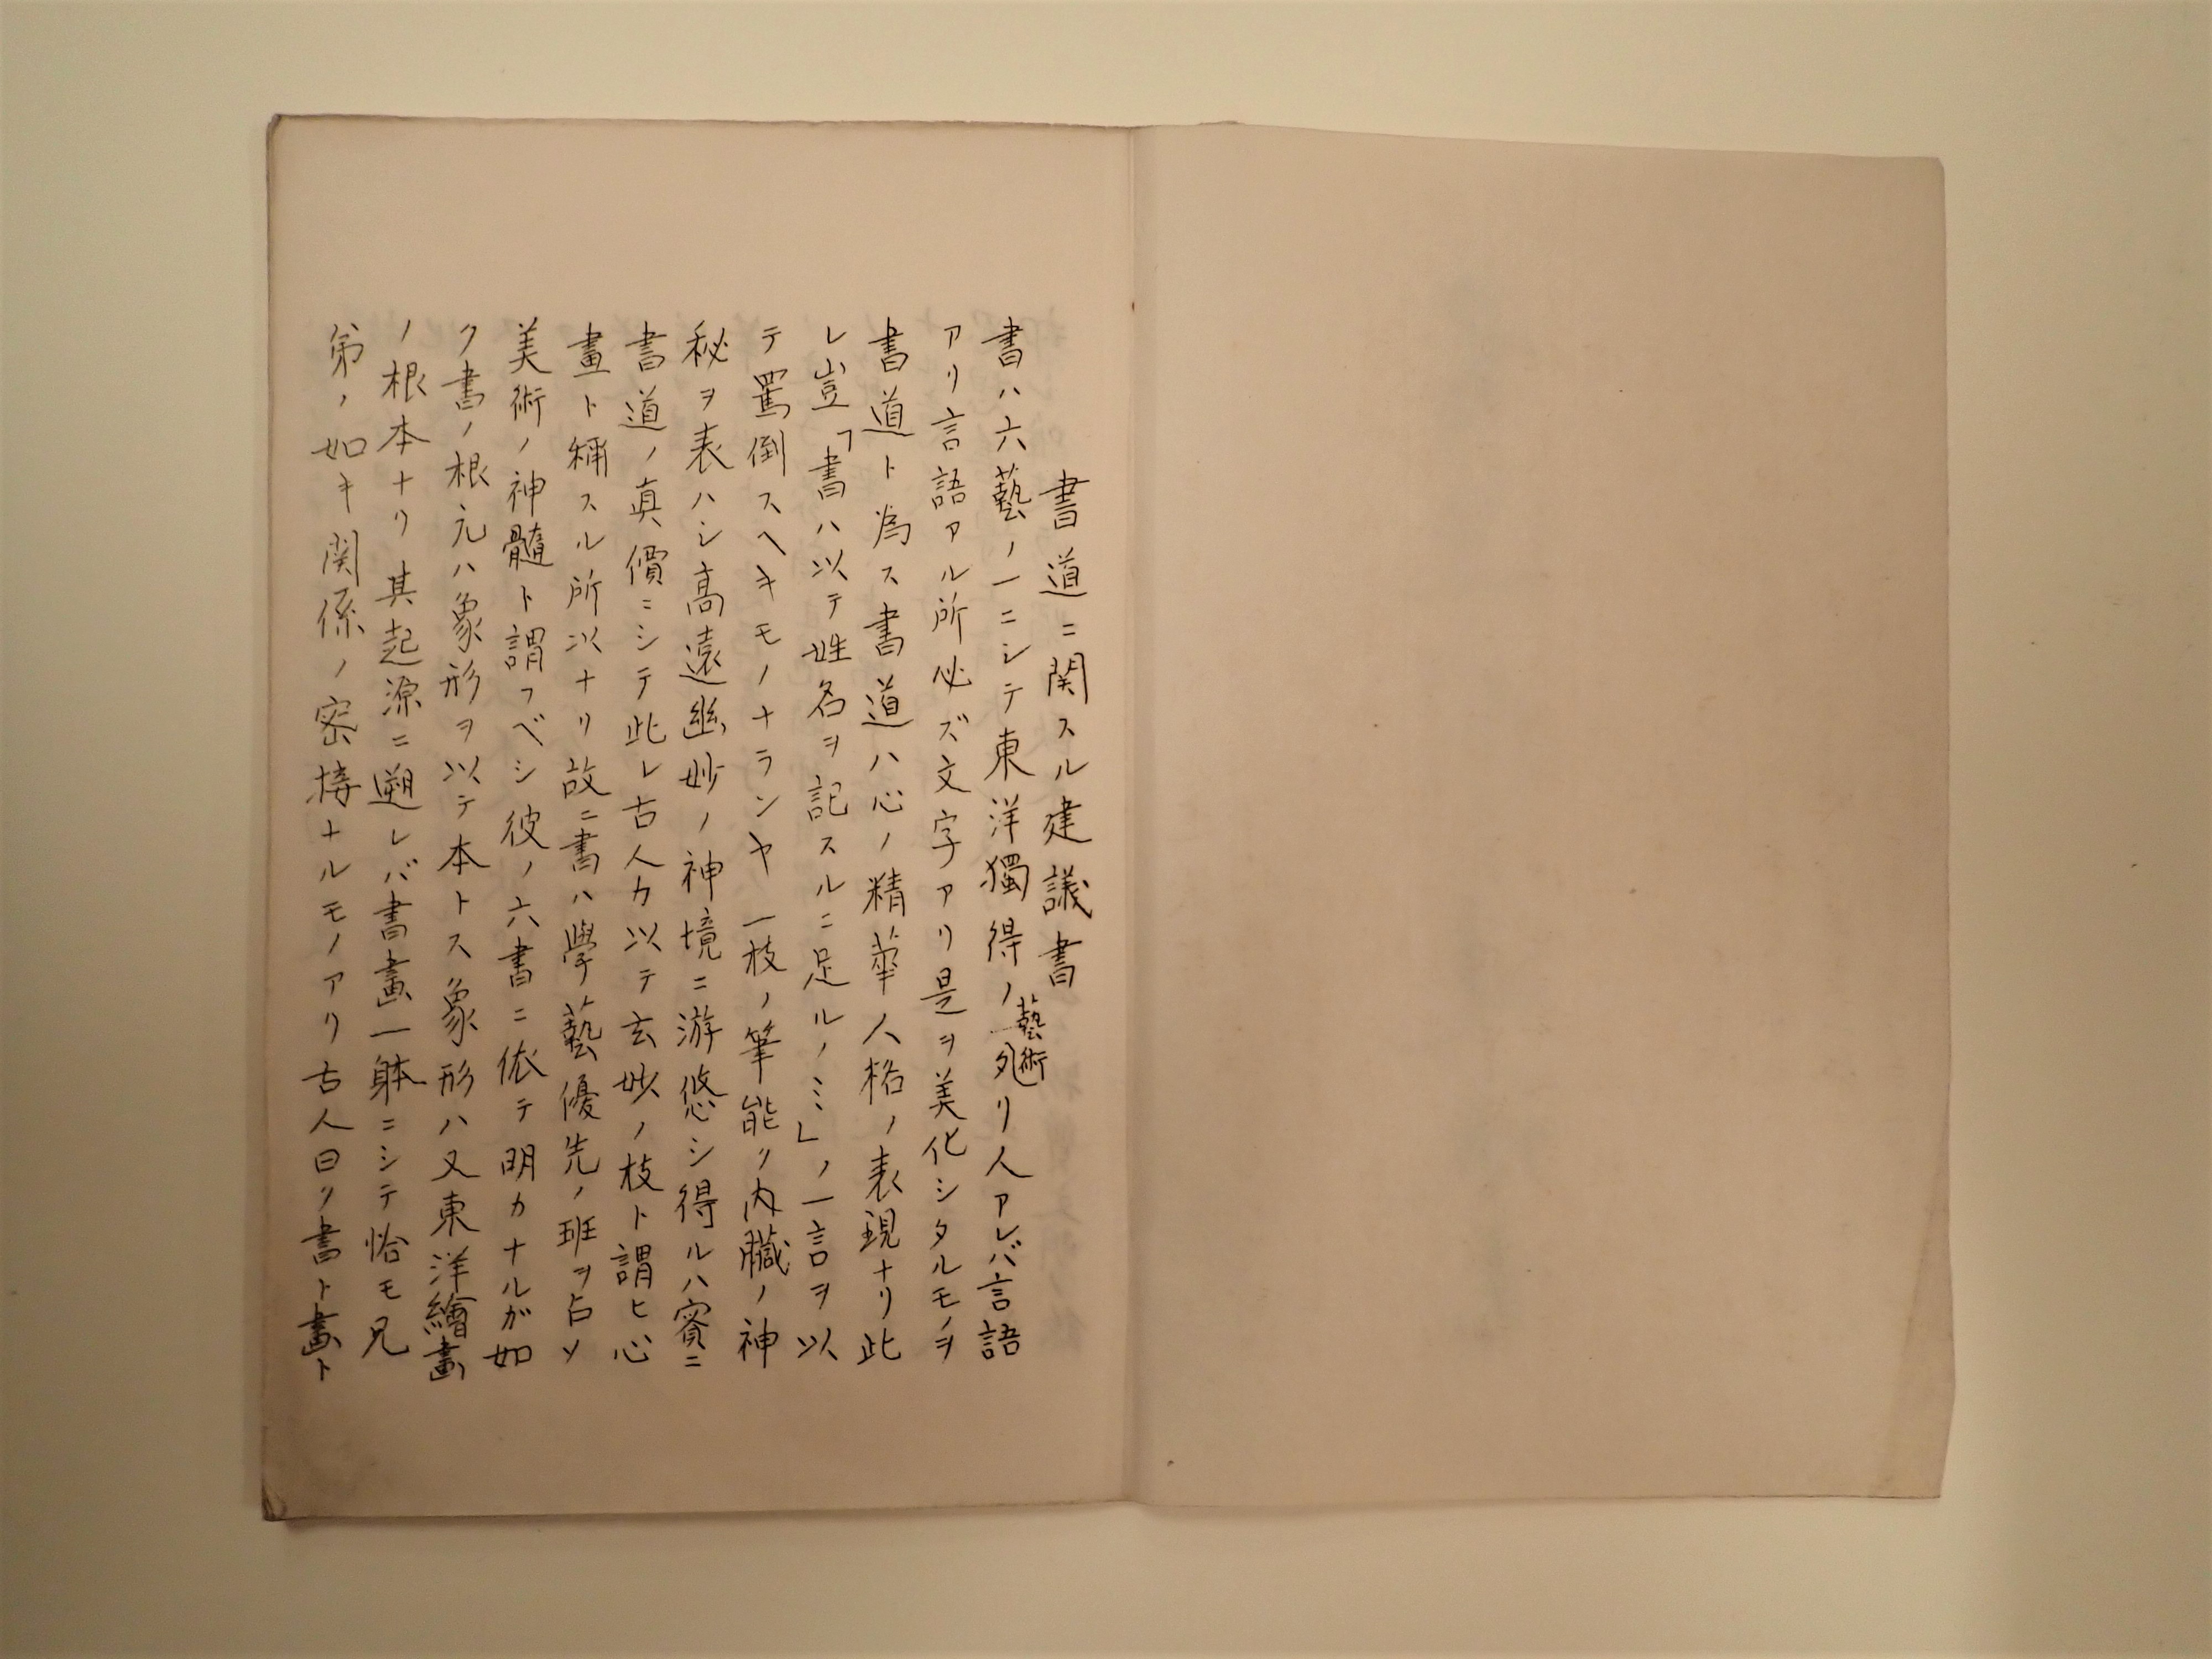 書道ニ関スル建議書
書ハ六藝ノ一ニシテ東洋獨得ノ藝術リ人アレバ言語
アリ言語アル所必ズ文字アリ是ヲ美化シタルモノヲ
書道ト為ス書道ハ心ノ精華人格ノ表現ナリ此
レ豈「書ハ以テ姓名ヲ記スルニ足ルノミ」ノ一言ヲ以
テ罵倒スヘキモノナランヤ一枝ノ筆能ク内臓ノ神
秘ヲ表ハシ高遠幽妙ノ神境ニ游悠シ得ルハ實ニ
書道ノ真價ニシテ此レ古人カ以テ玄妙ノ枝ト謂ヒ心
畫ト稱スル所以ナリ故ニ書ハ學藝優先ノ班ヲ占メ
美術ノ神髓ト謂フベシ彼ノ六書ニ依テ明カナルガ如
ク書ノ根元ハ象形ヲ以テ本トス象形ハ又東洋繪畫
ノ根本ナリ其起源ニ遡レバ書畫一躰ニシテ恰モ兄
弟ノ如キ関係ノ密接ナルモノアリ古人曰ク書ト畫ト